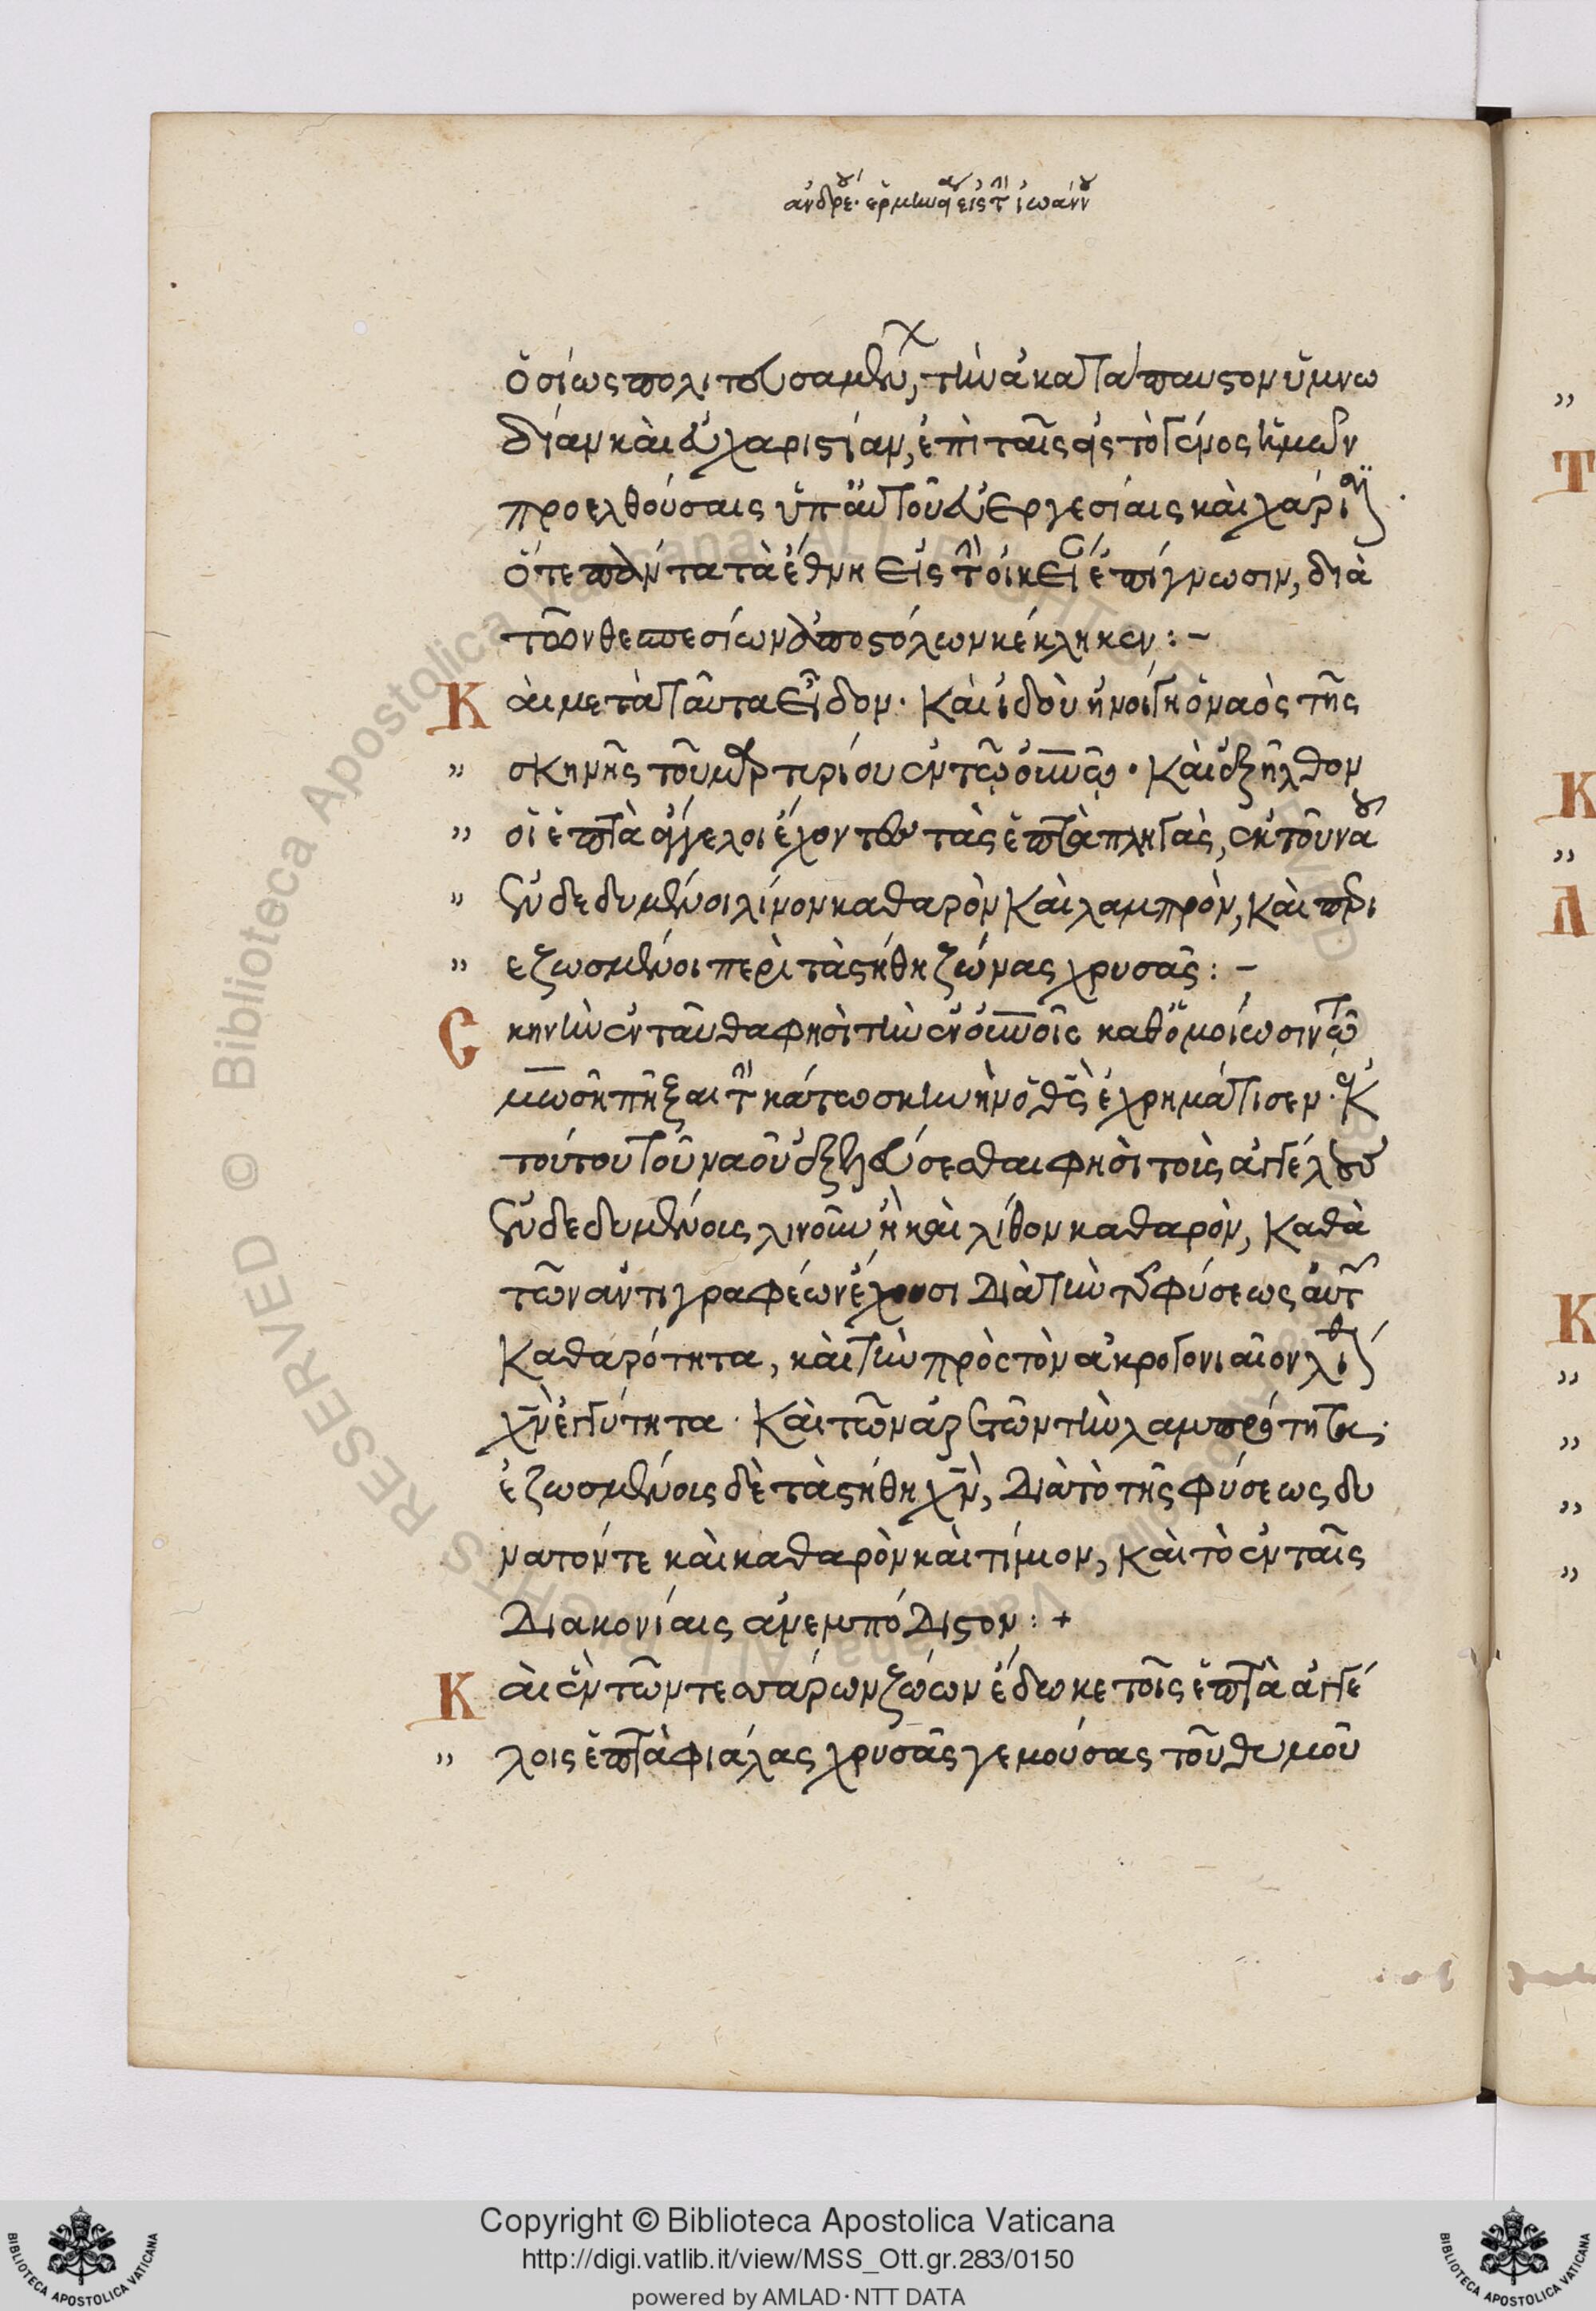 ἀνδρέου ἑρμηνεία εἰς τὴν ἰωάννου
ὁσίως πολιτευσαμένων, τὴν ἀκατάπαυστον ὑμνω
δίαν καὶ εὐχαριστίαν, ἐπὶ ταῖς εἰς τὸ γένος ἡμῶν
προελθούσαις ὑπ' αὐτοῦ εὐεργεσίαις καὶ χάρισιν
ὅτε πάντα τὰ ἔθνη εἰς τὴν οἰκείαν ἐπίγνωσιν, διὰ
τῶν θεσπεσίων ἀποστόλων κέκληκεν : –
Καὶ μετὰ ταῦτα εἶδον· καὶ ἰδοὺ ἠνοίγη ὁ ναὸς τῆς
" σκηνῆς τοῦ μαρτυρίου ἐν τῷ οὐνῷ· καὶ ἐξῆλθον
" οἱ ἑπτὰ ἄγγελοι ἔχοντες τὰς ἑπτὰ πληγὰς, ἐκ τοῦ ναοῦ
" ἐνδεδυμένοι λίνον καθαρὸν καὶ λαμπρὸν, καὶ περι
" εζωσμένοι περὶ τὰ στήθη ζώνας χρυσᾶς : –
Σκηνὴν ἐνταῦθα φησὶ τὴν ἐν οὐνοῖς καθ' ὁμοίωσιν τῷ
μωσῆ πῆξαι τὴν κάτω σκηνὴν ὁ θς ἐχρημάτισεν· ἐκ
τούτου τοῦ ναοῦ ἐξελεύσεσθαι φησὶ τοὺς ἀγγέλους
ἐνδεδυμένοις λινοῦν ἢ καὶ λίθον καθαρὸν, καθὰ
τῶν ἀντιγραφέων ἔχουσι διὰ τὴν τῆς φύσεως αὐτῶν
καθαρότητα, καὶ τὴν πρὸς τὸν ἀκρογονιαῖον λίθον
χν ἐγγύτητα· καὶ τῶν ἀρετῶν τὴν λαμπρότητα·
ἐζωσμένοις δὲ τὰ στήθη χν, διὰ τὸ τῆς φύσεως δυ
νατόν τε καὶ καθαρὸν καὶ τίμιον, καὶ τὸ ἐν ταῖς
διακονίαις ἀνεμπόδιστον : +
Καὶ ἓν τῶν τεσσάρων ζώων ἔδωκε τοῖς ἑπτὰ ἀγγέ
" λοις ἑπτὰ φιάλας χρυσᾶς γεμούσας τοῦ θυμοῦ
"
Τ
Κ
"
Λ
Κ
"
"
"
"
© Biblioteca Apostolica Vaticana ALL RIGHTS RESERVED
Copyright © Biblioteca Apostolica Vaticana
http://digi.vatlib.it/view/MSS_Ott.gr.283/0150
powered by AMLAD · NTT DATA
BIBLIOTECA APOSTOLICA VATICANA
BIBLIOTECA APOSTOLICA VATICANA